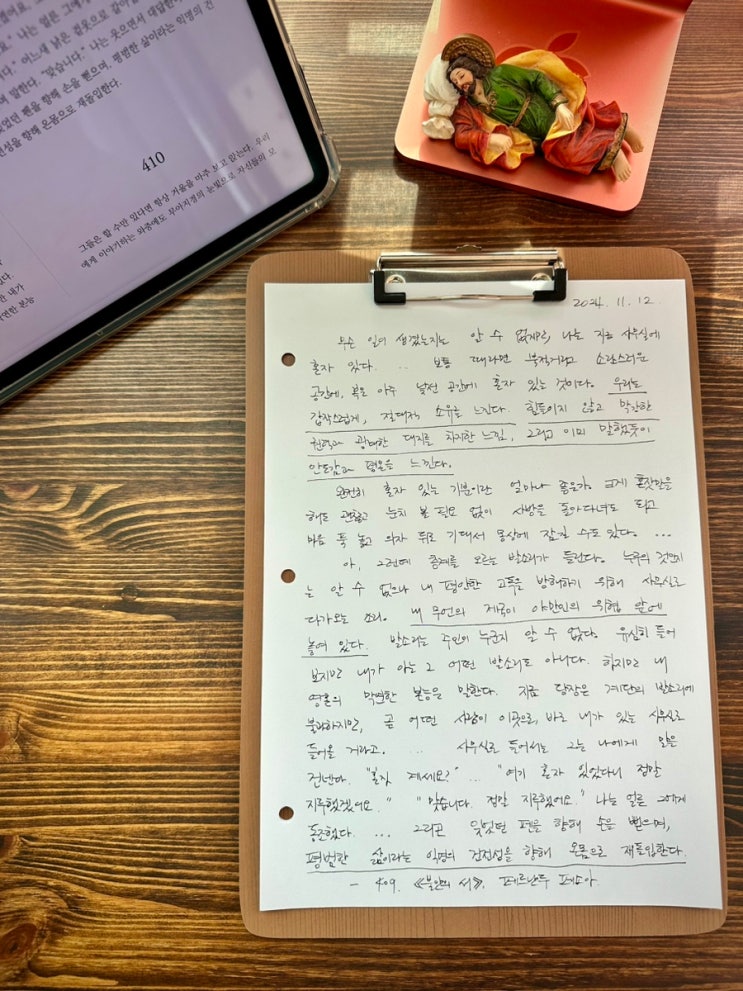 나는 얼른 그에게
어느새 낡은 겉옷으로 갈아입
"맞습니다." 나는 웃으면서 대답한
며 말한다.
잊었던 펜을 향해 손을 뻗으며, 평범한 삶이라는 익명의 건
전성을 향해 온몸으로 재돌입한다.
410
그들은 할 수만 있다면 항상 거울을 마주 보고 앉는다. 우리
에게 이야기하는 와중에도 무아지경의 눈빛으로 자신들의 모
2024. 11. 12.
무슨 일이 생겼는지는 알 수 없지만, 나는 지금 사무실에
혼자 있다. ... 보통 때라면 북적거리고 소란스러운
공간에, 복은 아주 낯선 공간에 혼자 있는 것이다. 우리는
갑작스럽게, 절대적 소유를 느낀다. 힘들이지 않고 막강한
권력과 광대한 대지를 차지한 느낌, 그리고 이미 말했듯이
안도감과 평온을 느낀다.
완전히 혼자 있는 기분이란 얼마나 좋은가. 크게 혼잣말을
해도 괜찮고 눈치 볼 필요 없이 사방을 돌아다녀도 되고
마음 푹 놓고 의자 뒤로 기대서 몽상에 잠길 수도 있다. ...
아, 그런데 층계를 오르는 발소리가 들린다. 누구의 것인지
는 알 수 없으나 내 평안한 고독을 방해하기 위해 사무실로
다가오는 소리. 내 무언의 제국이 야만인의 위협 앞에
놓여 있다. 발소리는 주인이 누군지 알 수 없다. 유심히 들어
보지만 내가 아는 그 어떤 발소리도 아니다. 하지만 내
영혼의 막연한 본능은 말한다. 지금 당장은 계단의 발소리에
불과하지만, 곧 어떤 사람이 이곳으로, 바로 내가 있는 사무실로
들어올 거라고. ... 사무실로 들어서는 그는 나에게 말을
건넨다. "혼자 계세요?" ... "여기 혼자 있었다니 정말
지루했겠어요." "맞습니다. 정말 지루했어요." 나는 얼른 그에게
동조했다. ... 그리고 잊었던 펜을 향해 손을 뻗으며,
평범한 삶이라는 익명의 건전성을 향해 온몸으로 재돌입한다.
- 409. 《불안의 서》, 페르난두 페소아